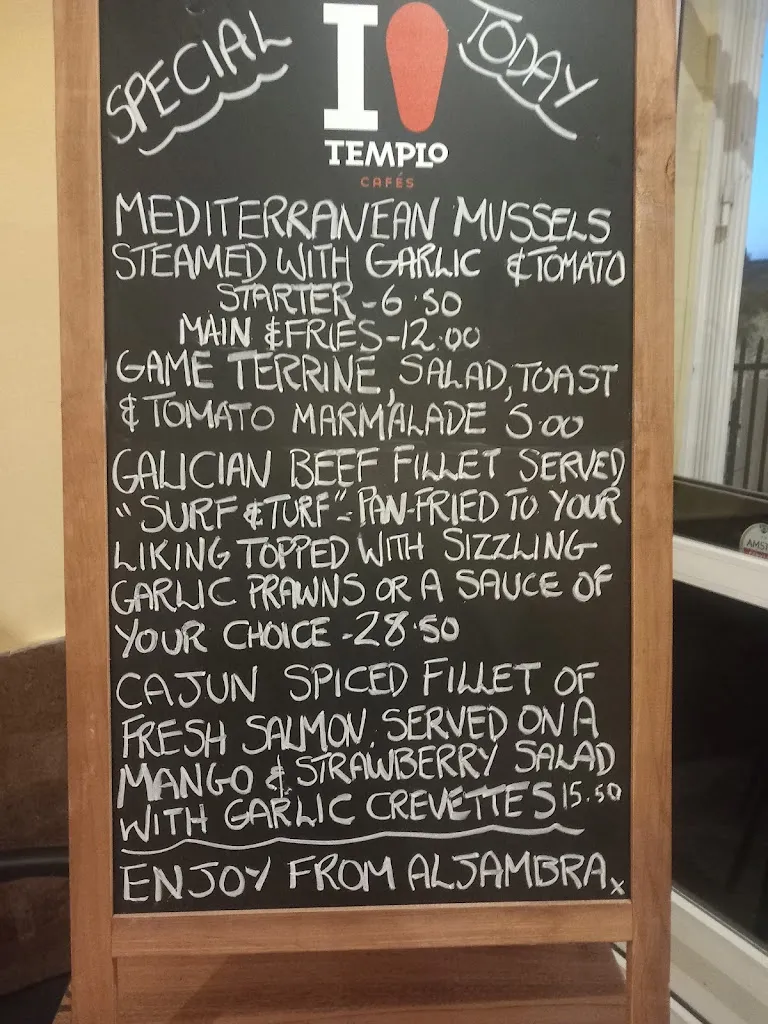 SPECIAL TODAY
I
TEMPLO
CAFÉS
MEDITERRANEAN MUSSELS
STEAMED WITH GARLIC & TOMATO
STARTER - 6.50
MAIN & FRIES - 12.00
GAME TERRINE, SALAD, TOAST
& TOMATO MARMALADE 5.00
GALICIAN BEEF FILLET SERVED
"SURF & TURF" - PAN-FRIED TO YOUR
LIKING TOPPED WITH SIZZLING
GARLIC PRAWNS OR A SAUCE OF
YOUR CHOICE - 28.50
CAJUN SPICED FILLET OF
FRESH SALMON, SERVED ON A
MANGO & STRAWBERRY SALAD
WITH GARLIC CREVETTES 15.50
ENJOY FROM ALJAMBRA x